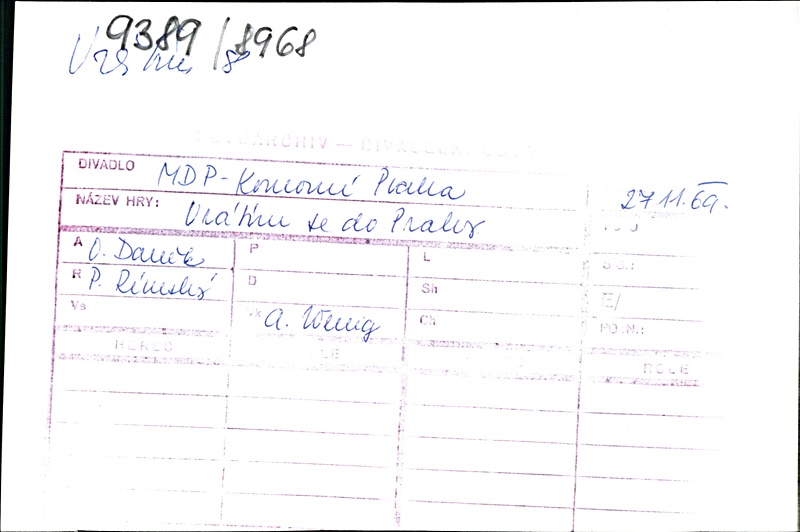 9389/8968
FOTOARCHIV – DIVADELNÍ
DIVADLO MDP-Komorní Praha 27 11. 69.
NÁZEV HRY: Vrátím se do Prahy
A O. Daněk P L
R P. Rímský D Sh
Vs Vk A. Wenig Ch PO.N.:
HEREC ROLE